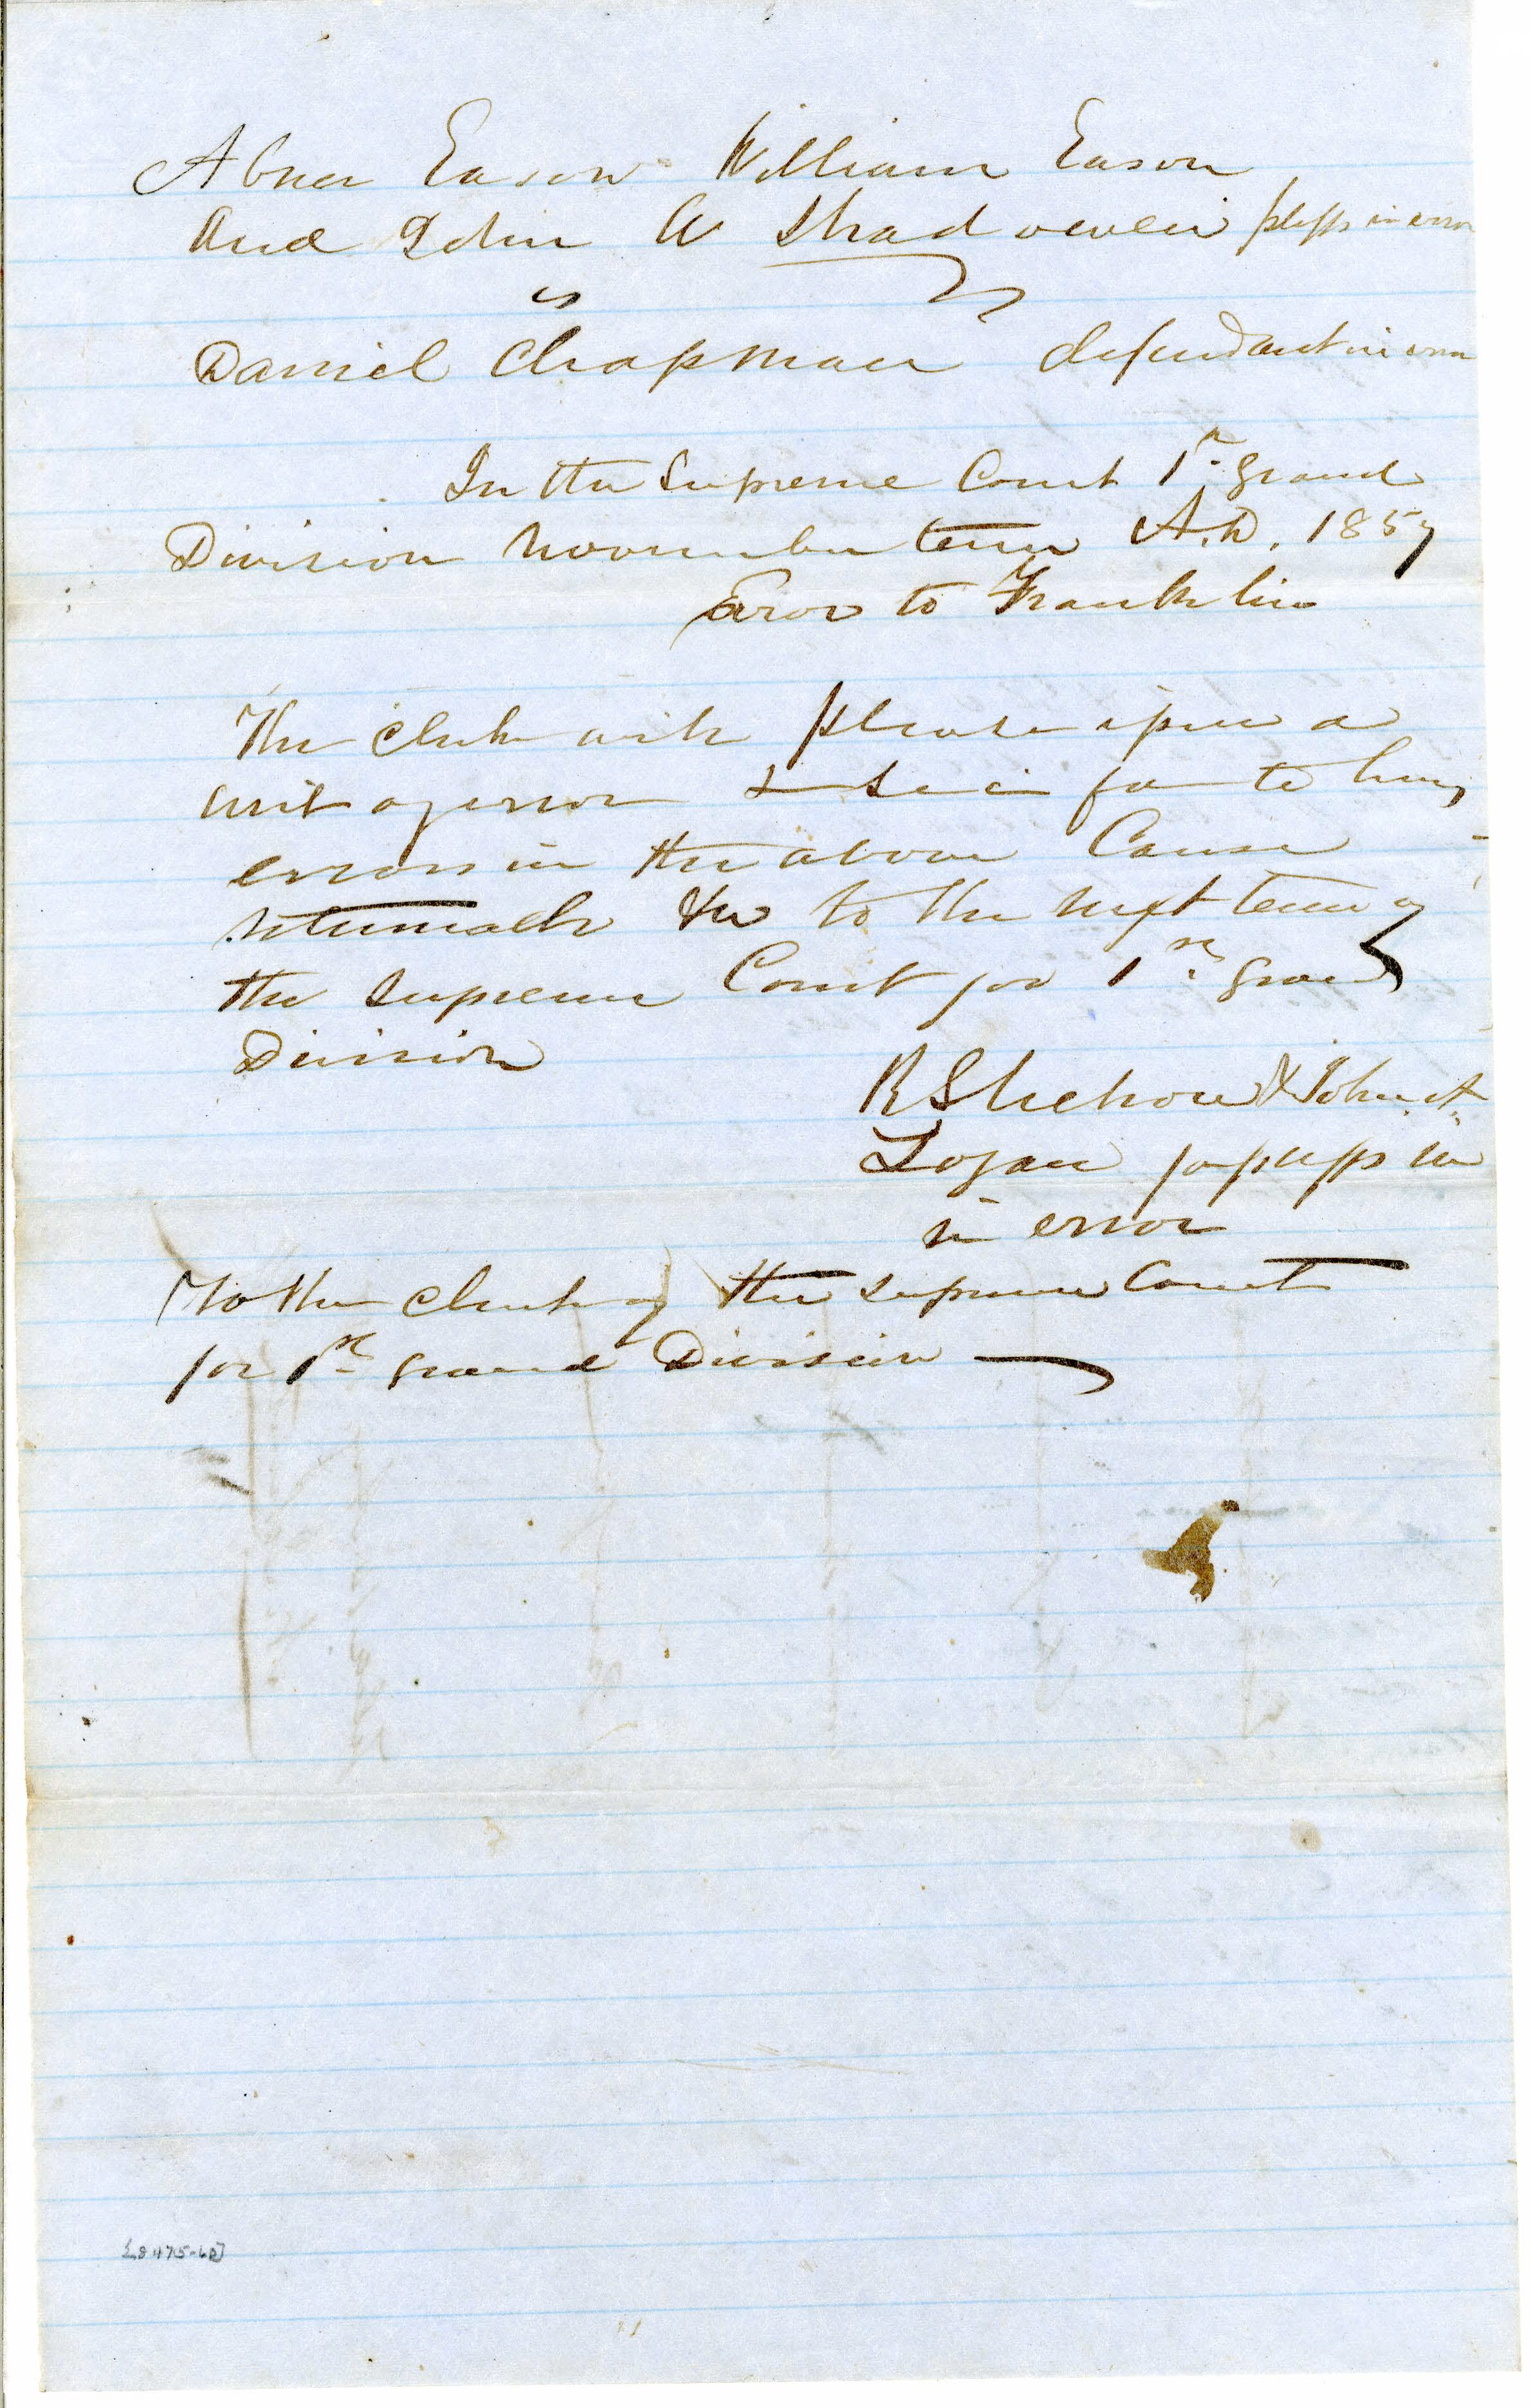 Abner Eason William Eason
and John W Shadowen plffs in error
vs
Daniel Chapman defendant in error
In the Supreme Court 1st Grand
Division November term A.D. 1857
Error to Franklin
The Clerk will please issue a
writ of error & sci fa to hear
errors in the above Cause
returnable &c to the next term of
the Supreme Court for 1st Grand
Division
& John A.
Logan for plffs in
in error
To the Clerk of the Supreme Court
for 1st Grand Division